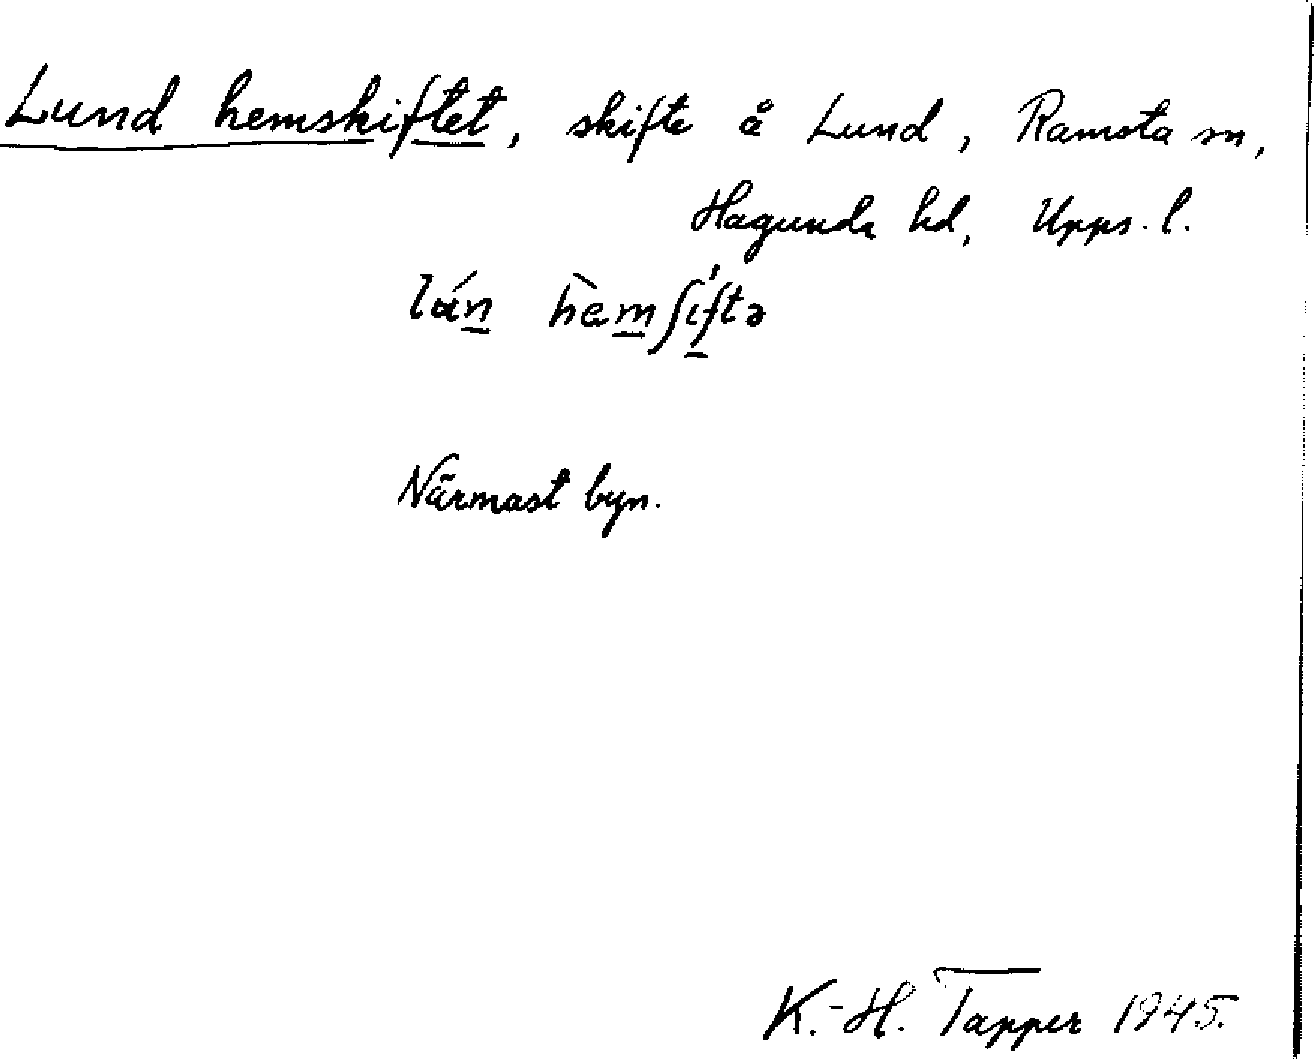 Lund hemskiftet, skifte å Lund, Ramsta sn,
Hagunda hd, Upps. l.
lán hèmʃiftə
Närmast byn.
K.-H. Tapper 1945.